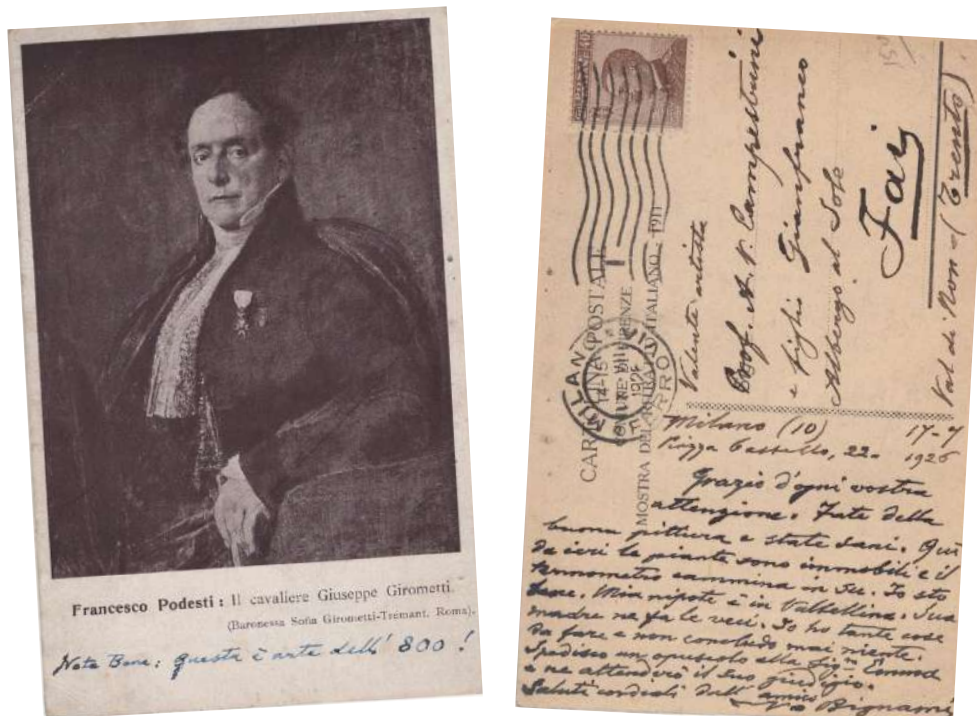 Francesco Podesti: Il cavaliere Giuseppe Girometti.
(Baronessa Sofia Girometti-Tremant. Roma).
Nota Bene: questa è arte dell' 800!
CARTOLINA POSTALE
COMUNE DI FIRENZE
MOSTRA DEL RITRATTO ITALIANO - 1911
MILANO
14-15
1926
FERROVIA
Valente artista
Prof. A. V. Campestrini
e figlio Gianfranco
Albergo al Sole
Fai
Val di Non (Trento)
Milano (10) 17-7
Piazza Castello, 22. 1926
Grazie d'ogni vostra
attenzione. Fate della
buona pittura e state sani. Qui
da ieri le piante sono immobili e il
termometro cammina in su. Io sto
bene. Mia nipote è in Valtellina. Sua
madre ne fa le veci. Io ho tante cose
da fare e non concludo mai niente.
Spedisco un opuscolo alla
e ne attenderò il suo giudizio.
Saluti cordiali dall' amico
Bignami